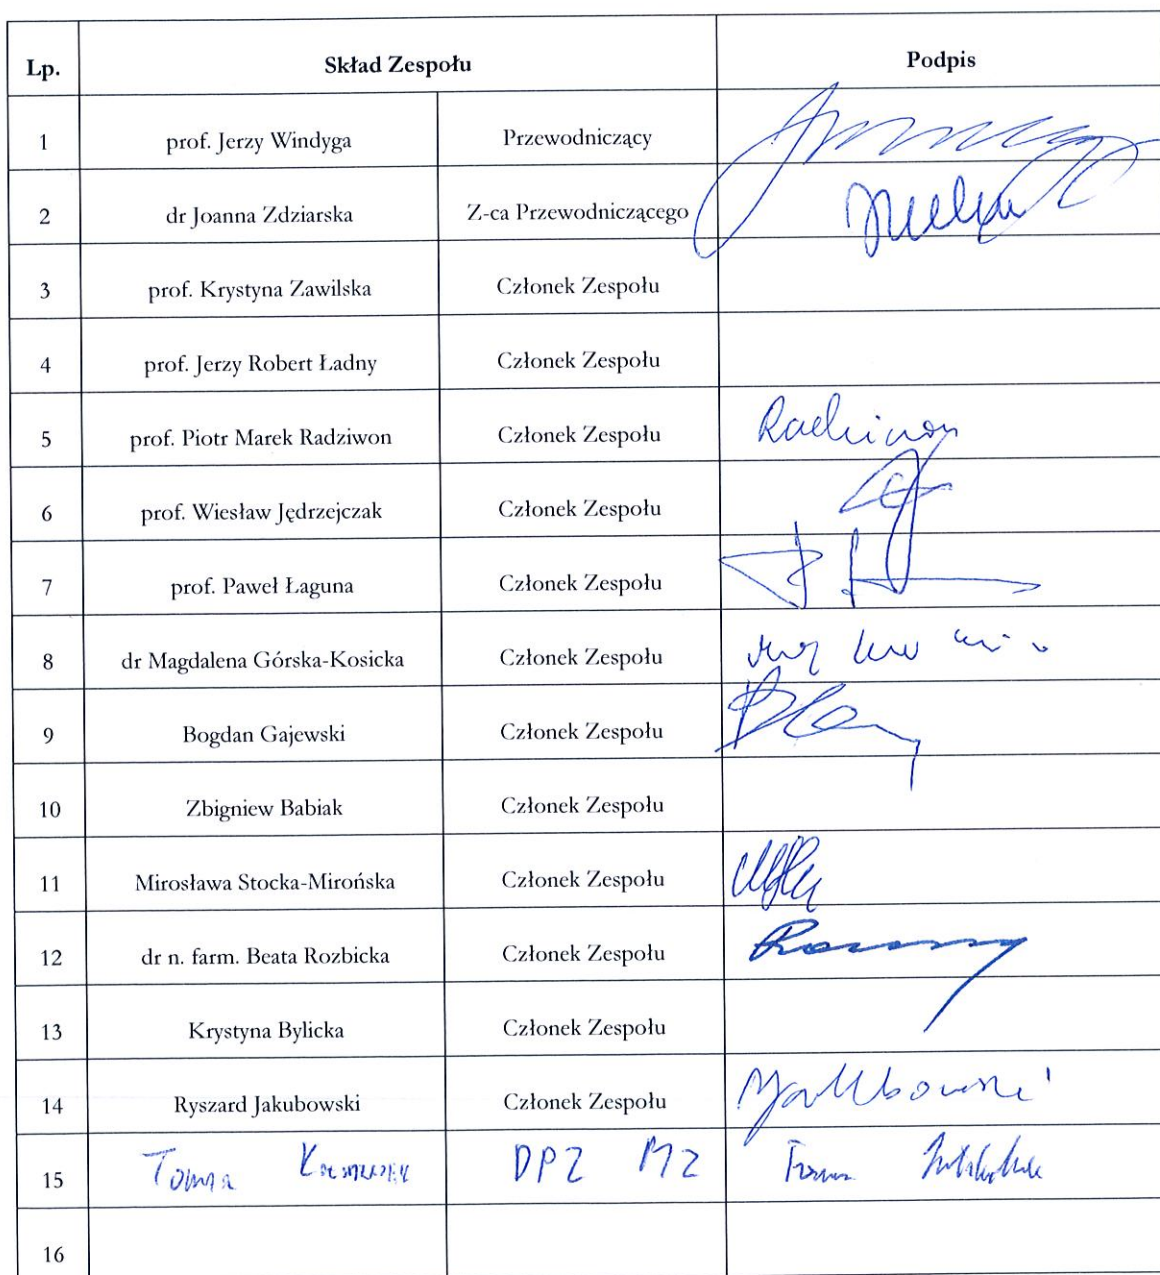 Lp. Skład Zespołu Podpis
1 prof. Jerzy Windyga Przewodniczący
2 dr Joanna Zdziarska Z-ca Przewodniczącego
3 prof. Krystyna Zawilska Członek Zespołu
4 prof. Jerzy Robert Ładny Członek Zespołu
5 prof. Piotr Marek Radziwon Członek Zespołu
6 prof. Wiesław Jędrzejczak Członek Zespołu
7 prof. Paweł Łaguna Członek Zespołu
8 dr Magdalena Górska-Kosicka Członek Zespołu
9 Bogdan Gajewski Członek Zespołu
10 Zbigniew Babiak Członek Zespołu
11 Mirosława Stocka-Mirońska Członek Zespołu
12 dr n. farm. Beata Rozbicka Członek Zespołu
13 Krystyna Bylicka Członek Zespołu
14 Ryszard Jakubowski Członek Zespołu
15 DPZ MZ
16